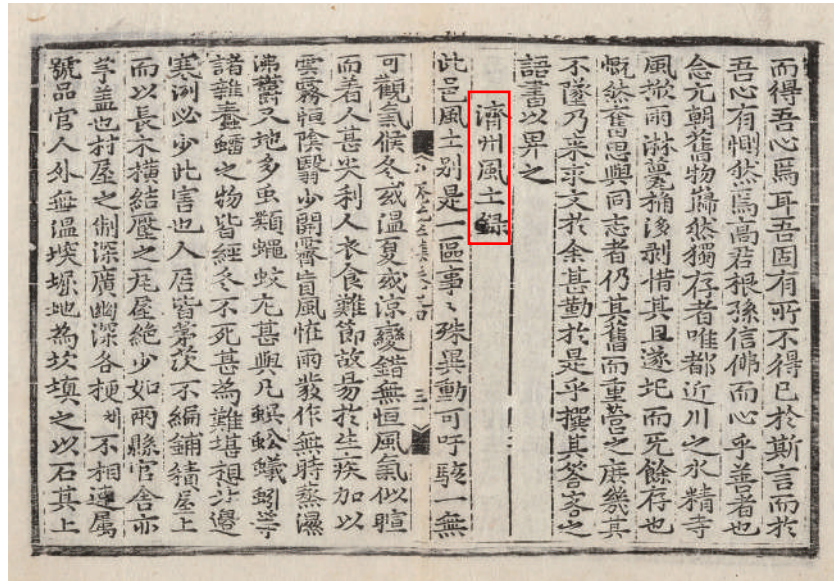 而得吾心焉耳吾固有所不得已於斯言而於
吾心有惻然焉高君根孫信佛而心乎善者也
念元朝舊物巋然獨存者唯都近川之水精寺
風欺雨淋甍桷浸剥惜其且遂圮而旡餘存也
慨然奮思與同志者仍其舊而重營之庶幾其
不墜乃来求文於余甚勤於是乎撰其答客之
語書以畀之
濟州風土録
此邑風土别是一區事〻殊異動可吁駭一無
三
可觀氣候冬或温夏或凉變錯無恒風氣似暄
而着人甚尖利人衣食難節故易於生疾加以
雲霧恒陰翳少開霽盲風怪雨發作無時蒸濕
沸鬱又地多虫類蠅蚊尤甚與凡蜈蚣蟻蚓等
諸雜蠢蠕之物皆經冬不死甚為難堪想北邊
寒冽必少此害也人居皆茅茨不編鋪積屋上
而以長木横結壓之瓦屋絶少如兩縣官舎亦
茅盖也村屋之制深廣幽深各梗 不相連属
號品官人外無温堗堀地為坎塡之以石其上